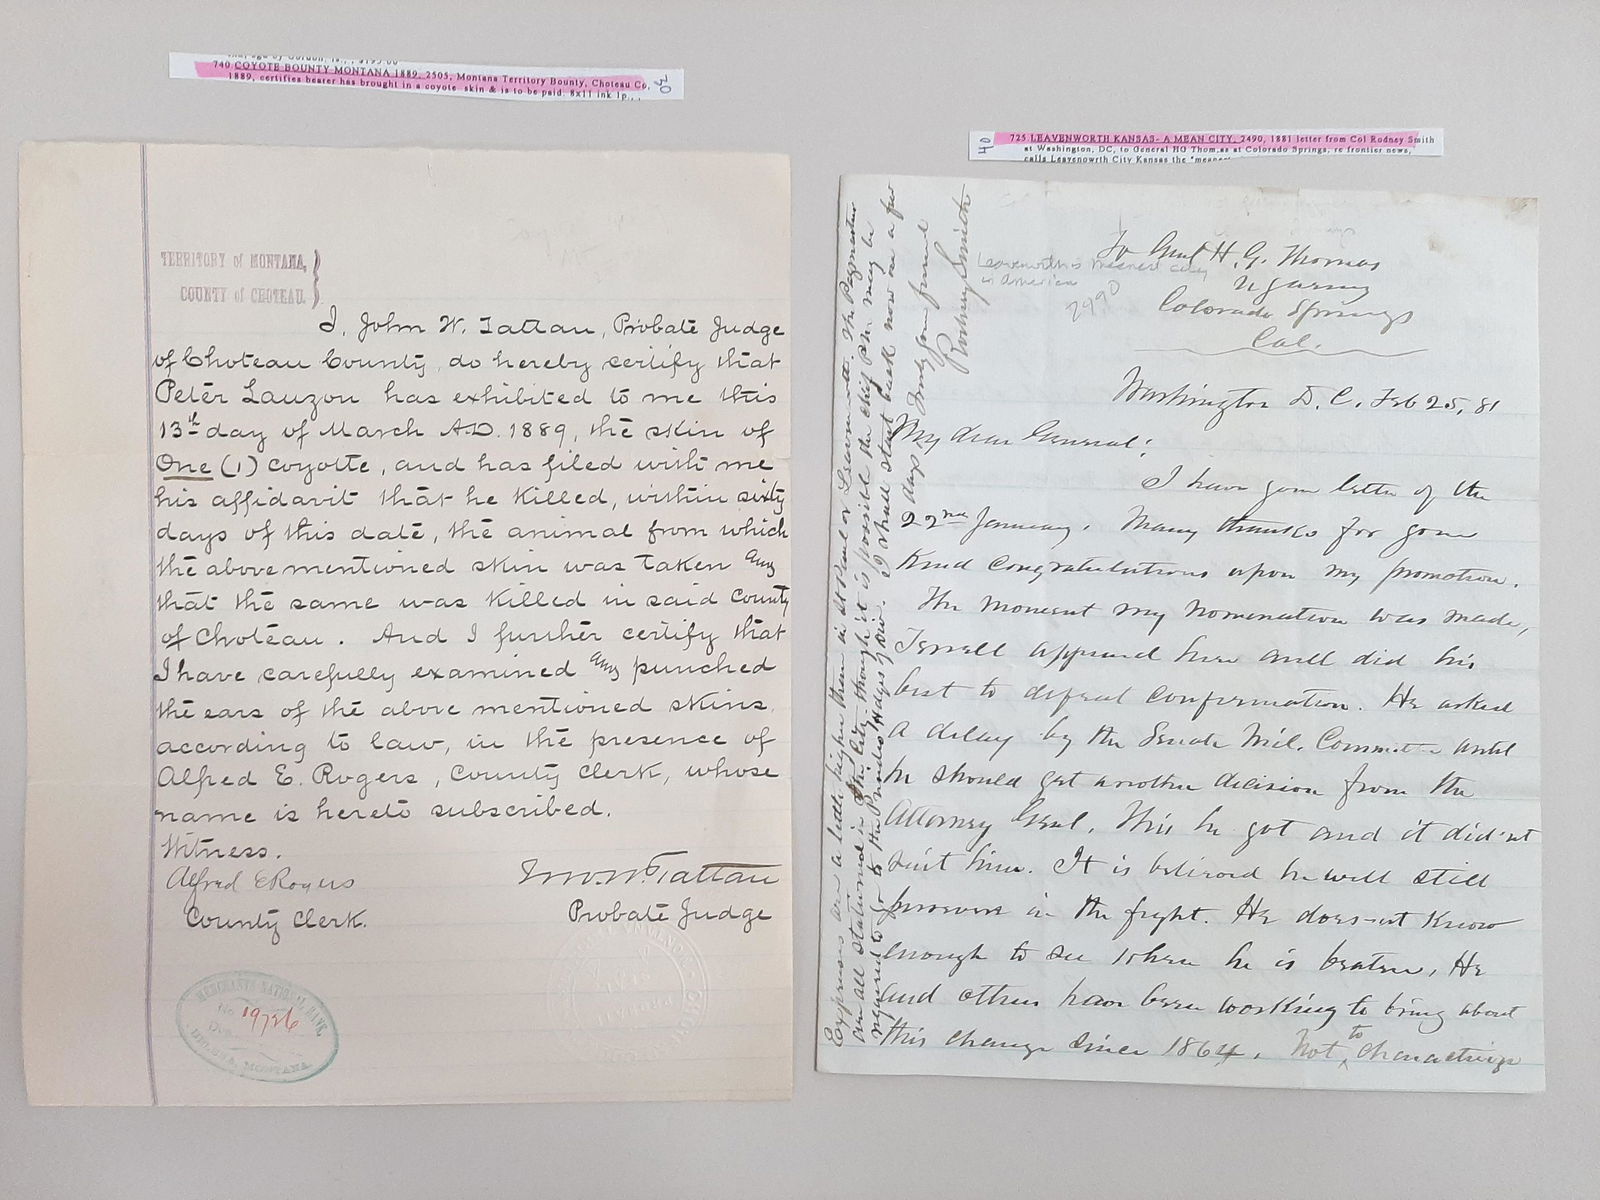 740 COYOTE BOUNTY MONTANA 1889, 2505, Montana Territory Bounty, Choteau Co,
1889, certifies bearer has brought in a coyote skin & is to be paid. 8x11 ink 1p.,
30
TERRITORY of MONTANA,
COUNTY of CHOTEAU.
I, John W. Tattan, Probate Judge
of Choteau County, do hereby certify that
Peter Lauzon has exhibited to me this
13th day of March A.D. 1889, the skin of
One (1) coyotte, and has filed with me
his affidavit that he killed, within sixty
days of this date, the animal from which
the above mentioned skin was taken and
that the same was killed in said County
of Choteau. And I further certify that
I have carefully examined and punched
the ears of the above mentioned skins,
according to law, in the presence of
Alfred E. Rogers, County Clerk, whose
name is hereto subscribed.
Witness.
Alfred E Rogers
County Clerk.
Jno. W. Tattan
Probate Judge
MERCHANTS NATIONAL BANK,
No. 19726
HELENA, MONTANA
40
725 LEAVENWORTH KANSAS- A MEAN CITY, 2490, 1881 letter from Col Rodney Smith
at Washington, DC, to General HG Thomas at Colorado Springs, re frontier news,
calls Leavenowrth City Kansas the "meanest
To Genl H. G. Thomas
U S Army
Colorado Springs
Col.
Leavenworth is meanest city
in America
2490
Washington D. C. Feb 25, 81
My dear General;
I have your letter of the
22nd January. Many thanks for your
kind congratulations upon my promotion.
The moment my nomination was made,
Terrell appeared here and did his
best to defeat confirmation. He asked
a delay by the Senate Mil. Committee until
he should get another decision from the
Attorney Genl. This he got and it did'nt
suit him. It is believed he will still
persevere in the fight. He does-nt know
enough to see when he is beaten. He
and others have been working to bring about
this change since 1864. Not to characterize
Expenses are a little higher than in St Paul or Leavenworth. The Paymasters
are all stationed in the City, though it is possible the chief P.M. may be
required to go to the Presidio Hdqrs of Div. I shall start back now in a few
days, Truly your friend
Rodney Smith